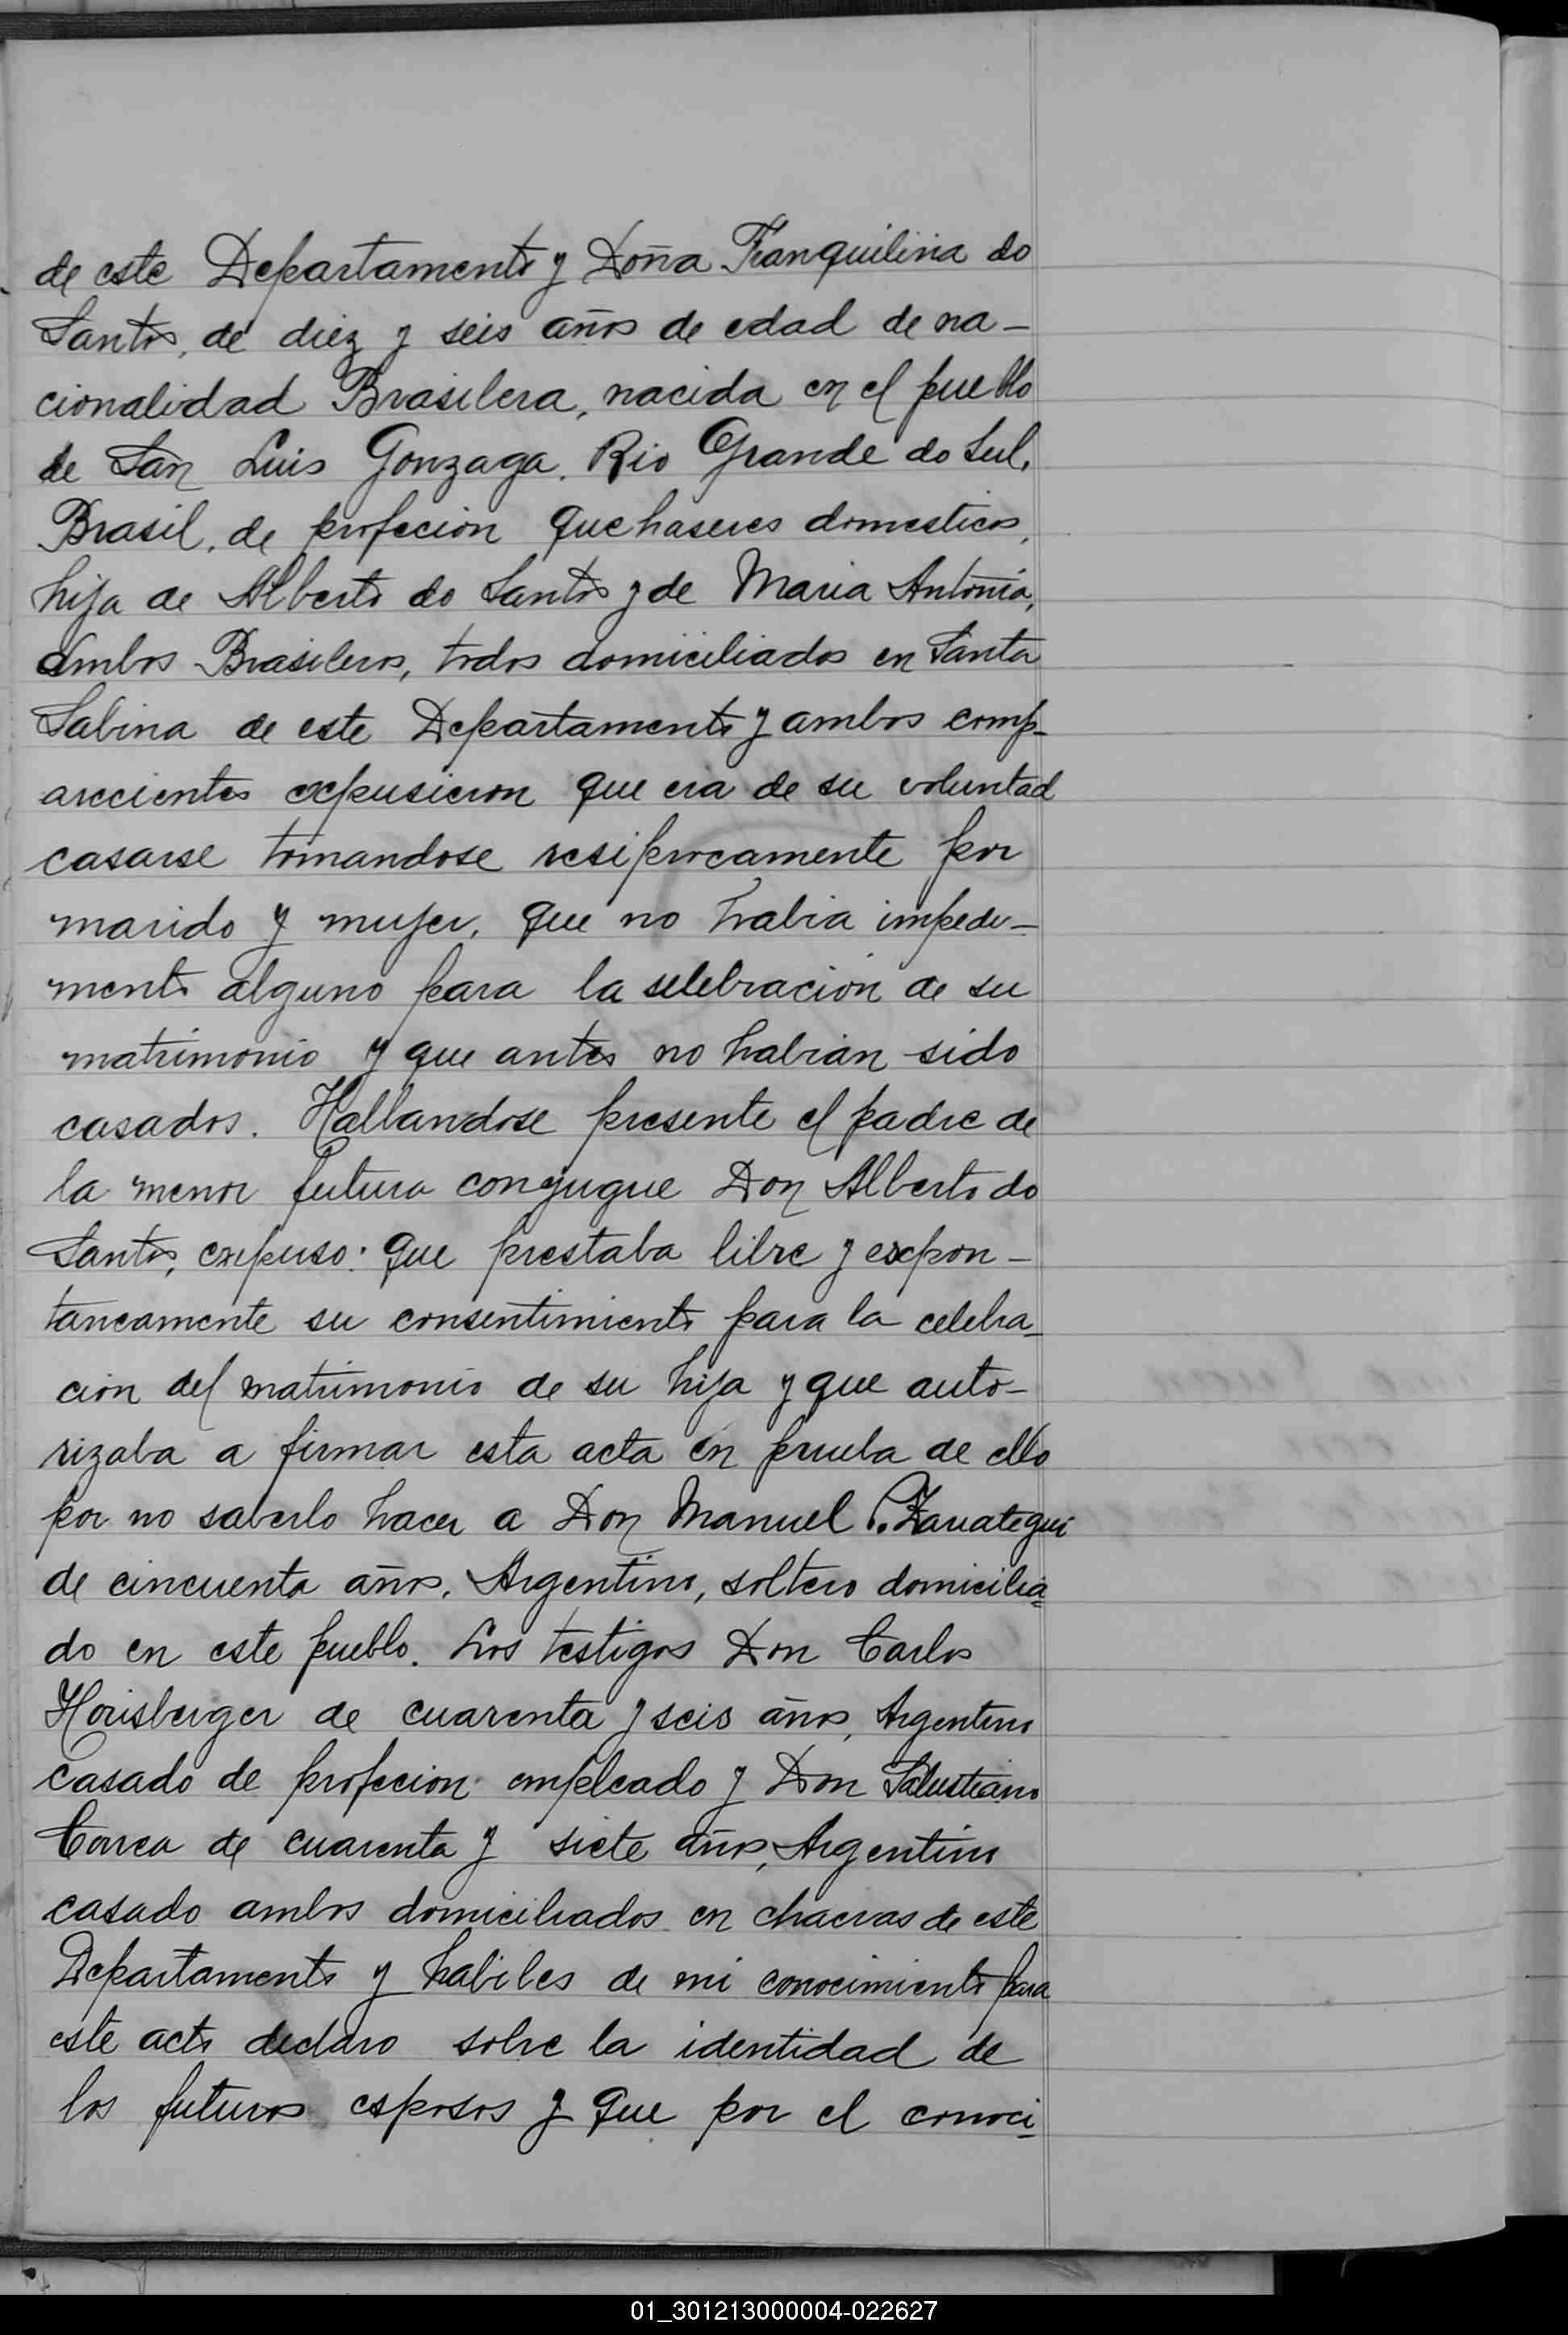 de este Departamento y Doña Tranquilina do
Santos, de diez y seis años de edad de na-
cionalidad Brasilera, nacida en el pueblo
de San Luis Gonzaga. Rio Grande do Sul,
Brasil, de profecion quehaseres domesticos,
hija de Alberto do Santos y de Maria Antonia,
ambos Brasileros, todos domiciliados en Santa
Sabina de este Departamento y ambos comp-
arecientes expusieron que era de su voluntad
casarse tomandose resiprocamente por
marido y mujer, que no habia impedi-
mento alguno para la selebracion de su
matrimonio y que antes no habian sido
casados. Hallandose presente el padre de
la menor futura conjugue Don Alberto do
Santos, expuso: que prestaba libre y expon-
taneamente su consentimiento para la celebra-
cion del matrimonio de su hija y que auto-
rizaba a firmar esta acta en prueba de ello
por no saberlo hacer a Don Manuel P. Zarategui
de cincuenta años, Argentino, soltero domicilia-
do en este pueblo. Los testigos Don Carlos
Horisberger de cuarenta y seis años, Argentino
casado de profecion empleado y Don Salustiano
Correa de cuarenta y siete años, Argentino
casado ambos domiciliados en chacras de este
Departamento y habiles de mi conocimiento para
este acto declaro sobre la identidad de
los futuros esposos y que por el conoci-
01_301213000004-022627